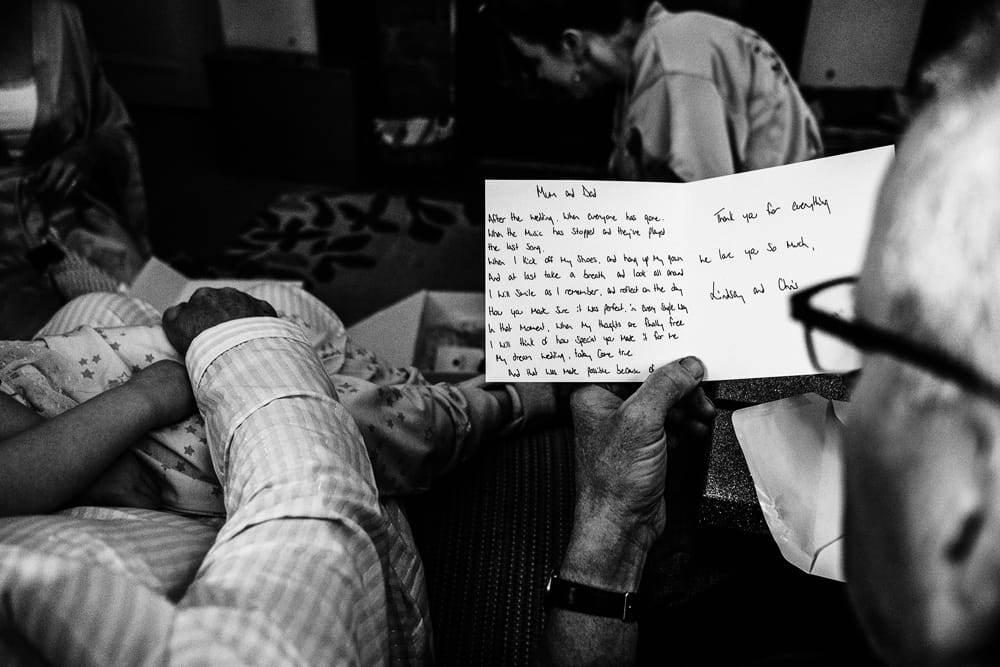 Mum and Dad
After the wedding, when everyone has gone.
When the Music has stopped and they've played
the last song.
When I kick off My Shoes, and hang up My gown
And at last take a breath and look all around
I will Smile as I remember, and reflect on the day
How you Made Sure it was perfect, in every Single way
In that Moment, when My thoughts are finally free
I will think of how special you Made it for me
My dream wedding, today Came true
And that was Made possible because of
Thank you for everything
We love you So Much,
Lindsay and Chris